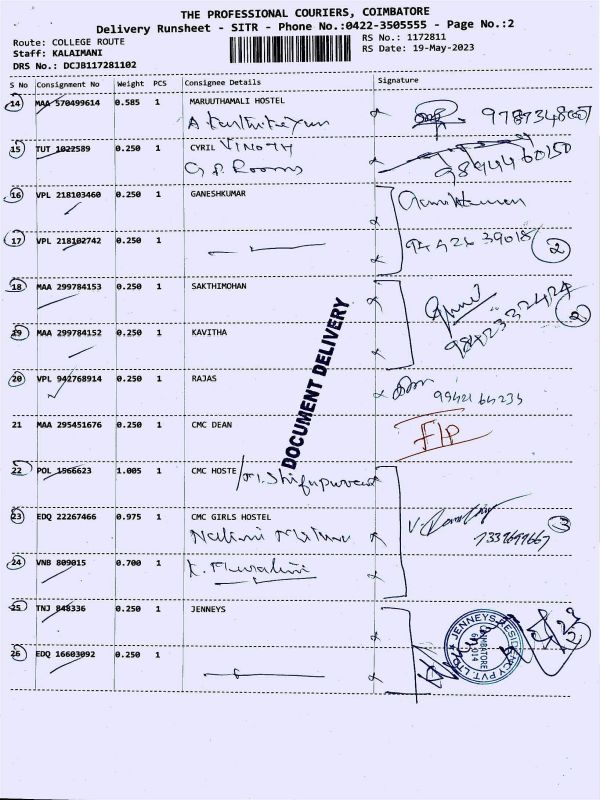 THE PROFESSIONAL COURIERS, COIMBATORE
Delivery Runsheet - SITR - Phone No.:0422-3505555 - Page No.:2
Route: COLLEGE ROUTE
RS No.: 1172811
Staff: KALAIMANI
RS Date: 19-May-2023
DRS No.: DCJB117281102
S No Consignment No Weight PCS Consignee Details Signature
14 MAA 570499614 0.585 1 MARUUTHAMALI HOSTEL
15 TUT 1022589 0.250 1 CYRIL VINOTH
G P Rooms
9894460150
16 VPL 218103460 0.250 1 GANESHKUMAR
17 VPL 218102742 0.250 1
94426 39018 2
18 MAA 299784153 0.250 1 SAKTHIMOHAN
19 MAA 299784152 0.250 1 KAVITHA
2
DOCUMENT DELIVERY
20 VPL 942768914 0.250 1 RAJAS
21 MAA 295451676 0.250 1 CMC DEAN
22 POL 1566623 1.005 1 CMC HOSTE
23 EDQ 22267466 0.975 1 CMC GIRLS HOSTEL
3
24 VNB 809015 0.700 1
K. Muralini
25 TNJ 848336 0.250 1 JENNEYS
JENNEYS RESIDENCY PVT. LTD.
COIMBATORE
641 014
26 EDQ 16603092 0.250 1